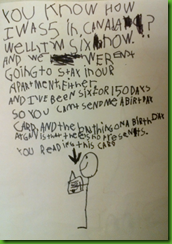 YOU KNOW HOW
I WAS 5 IN, CANADA??
WELL I'M SIX NOW.
AND WE WERENT
GOING TO STAY IN OUR
APARTMENT EITHER
AND I'VE BEEN SIX FOR 150 DAYS
SO YOU CANT SEND ME A BIRTHDAY
CARD, AND THE BAD THING ON A BIRTHDAY
is that there's no presents.
YOU READING THIS CARD